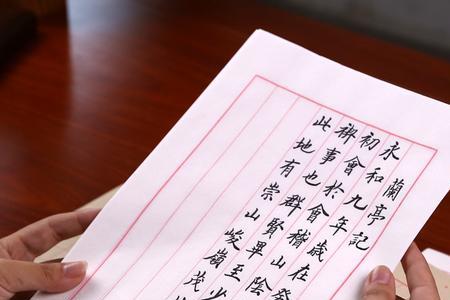 蘭亭記
永和九年歲在
初會於會稽山陰
禊事也群賢畢至少
此地有崇山峻嶺茂